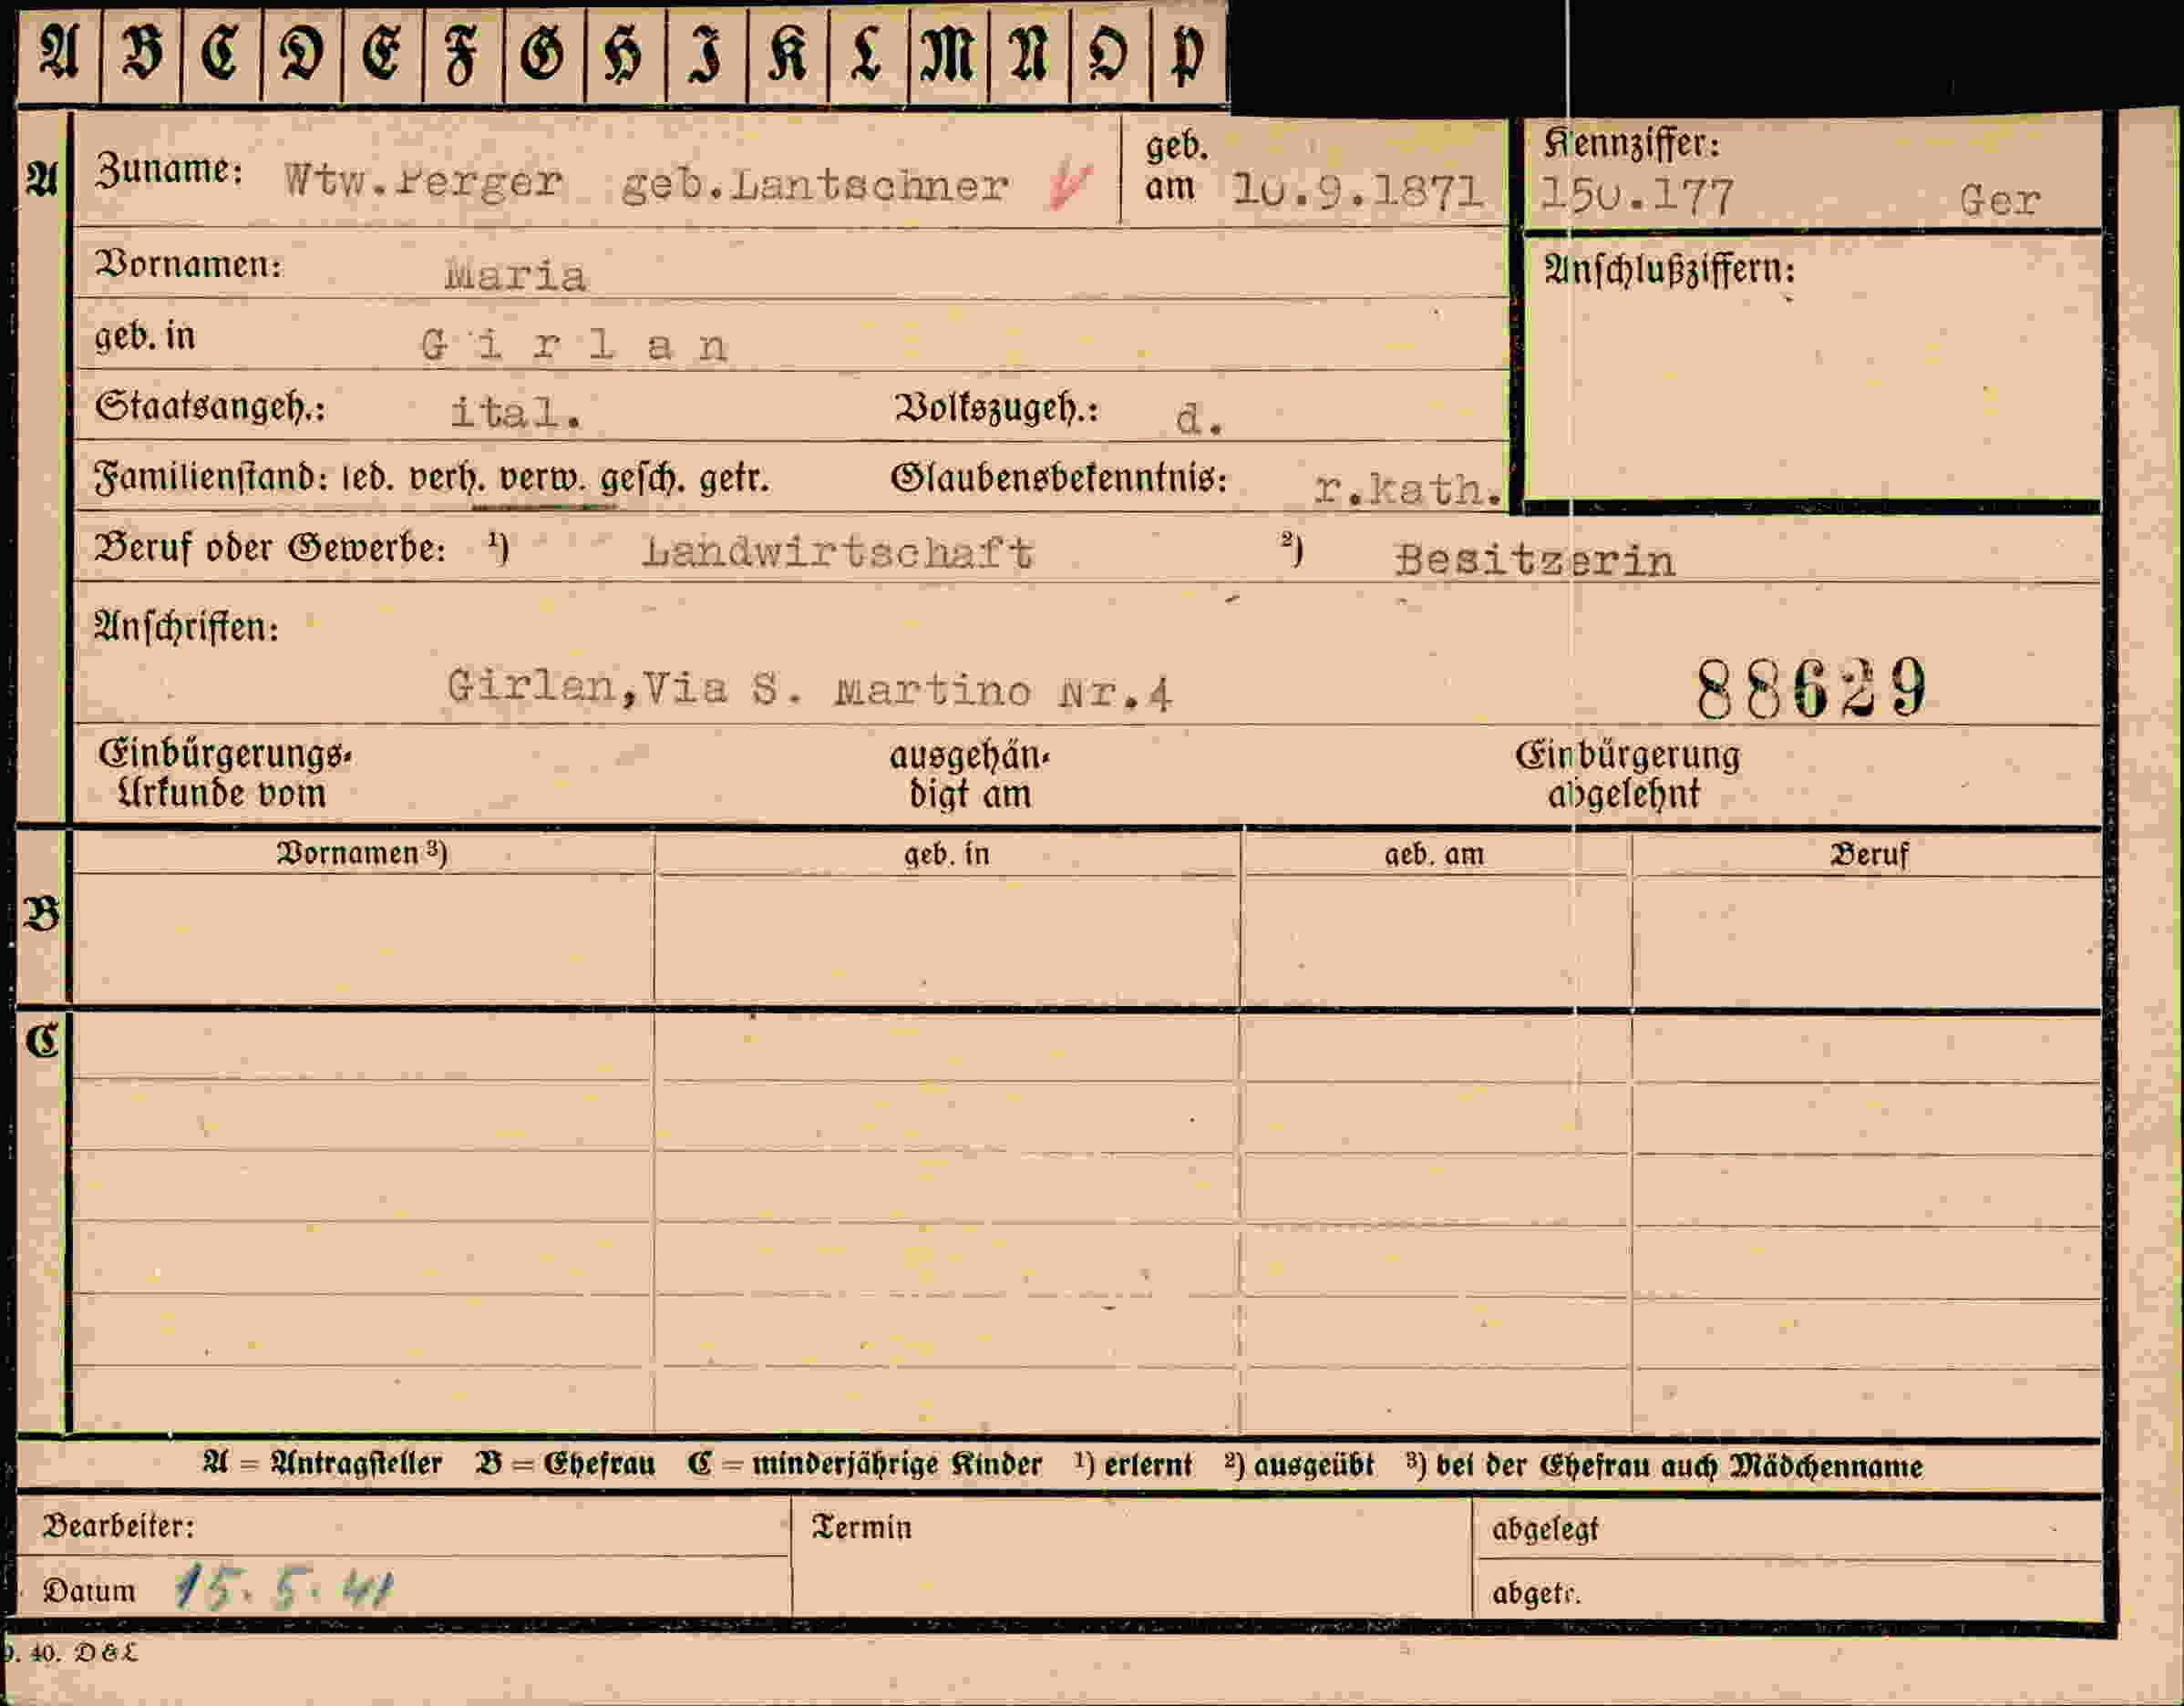 A B C D E F G H I K L M N O P
A Zuname: Wtw.Perger geb.Lantschner geb. am 10.9.1871 Kennziffer: 150.177 Ger
Vornamen: Maria Anschlußziffern:
geb. in Girlan
Staatsangeh.: ital. Volkszugeh.: d.
Familienstand: led. verh. verw. gesch. getr. Glaubensbekenntnis: r.kath.
Beruf oder Gewerbe: ¹) Landwirtschaft ²) Besitzerin
Anschriften:
Girlan,Via S. Martino Nr.4 88629
Einbürgerungs- ausgehän- Einbürgerung
Urkunde vom digt am abgelehnt
Vornamen ³) geb. in geb. am Beruf
B
C
A = Antragsteller B = Ehefrau C = minderjährige Kinder ¹) erlernt ²) ausgeübt ³) bei der Ehefrau auch Mädchenname
Bearbeiter: Termin abgelegt
Datum 15.5.41 abgetr.
9. 40. D & L